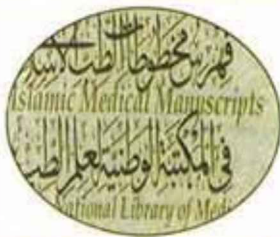 فهرس مخطوطات الطب الاسلا
Islamic Medical Manuscripts
في المكتبة الوطنية لعلم الطب
National Library of Medi